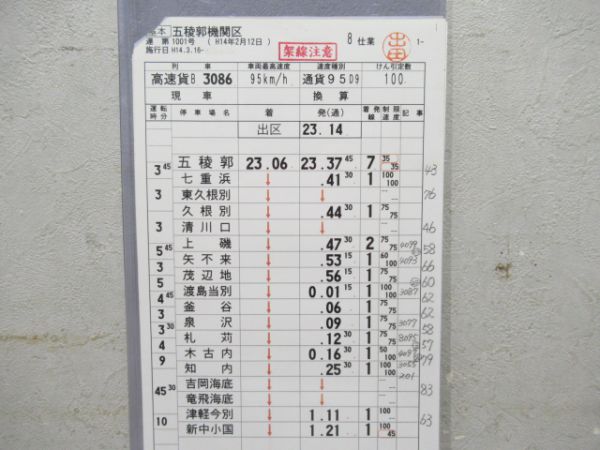 五稜郭機関区
運 第 1001号 ( H14年2月12日 ) 8 仕業 1-
施行日 H14.3.16-
架線注意
列 車 車両最高速度 速度種別 けん引定数
高速貨B 3086 95km/h 通貨95D9 100
現 車 換 算
運転時分 停 車 場 名 着 発(通) 着発線 制限速度 記 事
出区 23.14
五 稜 郭 23.06 23.37 45 7 35 35
3 45 43
七 重 浜 ↓ .41 30 1 100 100
3 76
東久根別 ↓ ↓
久 根 別 ↓ .44 30 1 75 75
3 46
清 川 口 ↓ ↓
上 磯 ↓ .47 30 2 75 75
5 45 58
矢 不 来 ↓ .53 15 1 60 100
3 66
茂 辺 地 ↓ .56 15 1 75 75
5 60
渡島当別 ↓ 0.01 15 1 100 100 3087
4 45 62
釜 谷 ↓ .06 1 75
3 62
泉 沢 ↓ .09 1 75 75 3077
3 30 58
札 苅 ↓ .12 30 1 75 75
4 57
木 古 内 ↓ 0.16 30 1 50 100
9 79
知 内 ↓ .25 30 1 100 100 201
吉岡海底 ↓ ↓
45 30 83
竜飛海底 ↓ ↓
津軽今別 ↓ 1.11 1 100
10 63
新中小国 ↓ 1.21 1 100 45